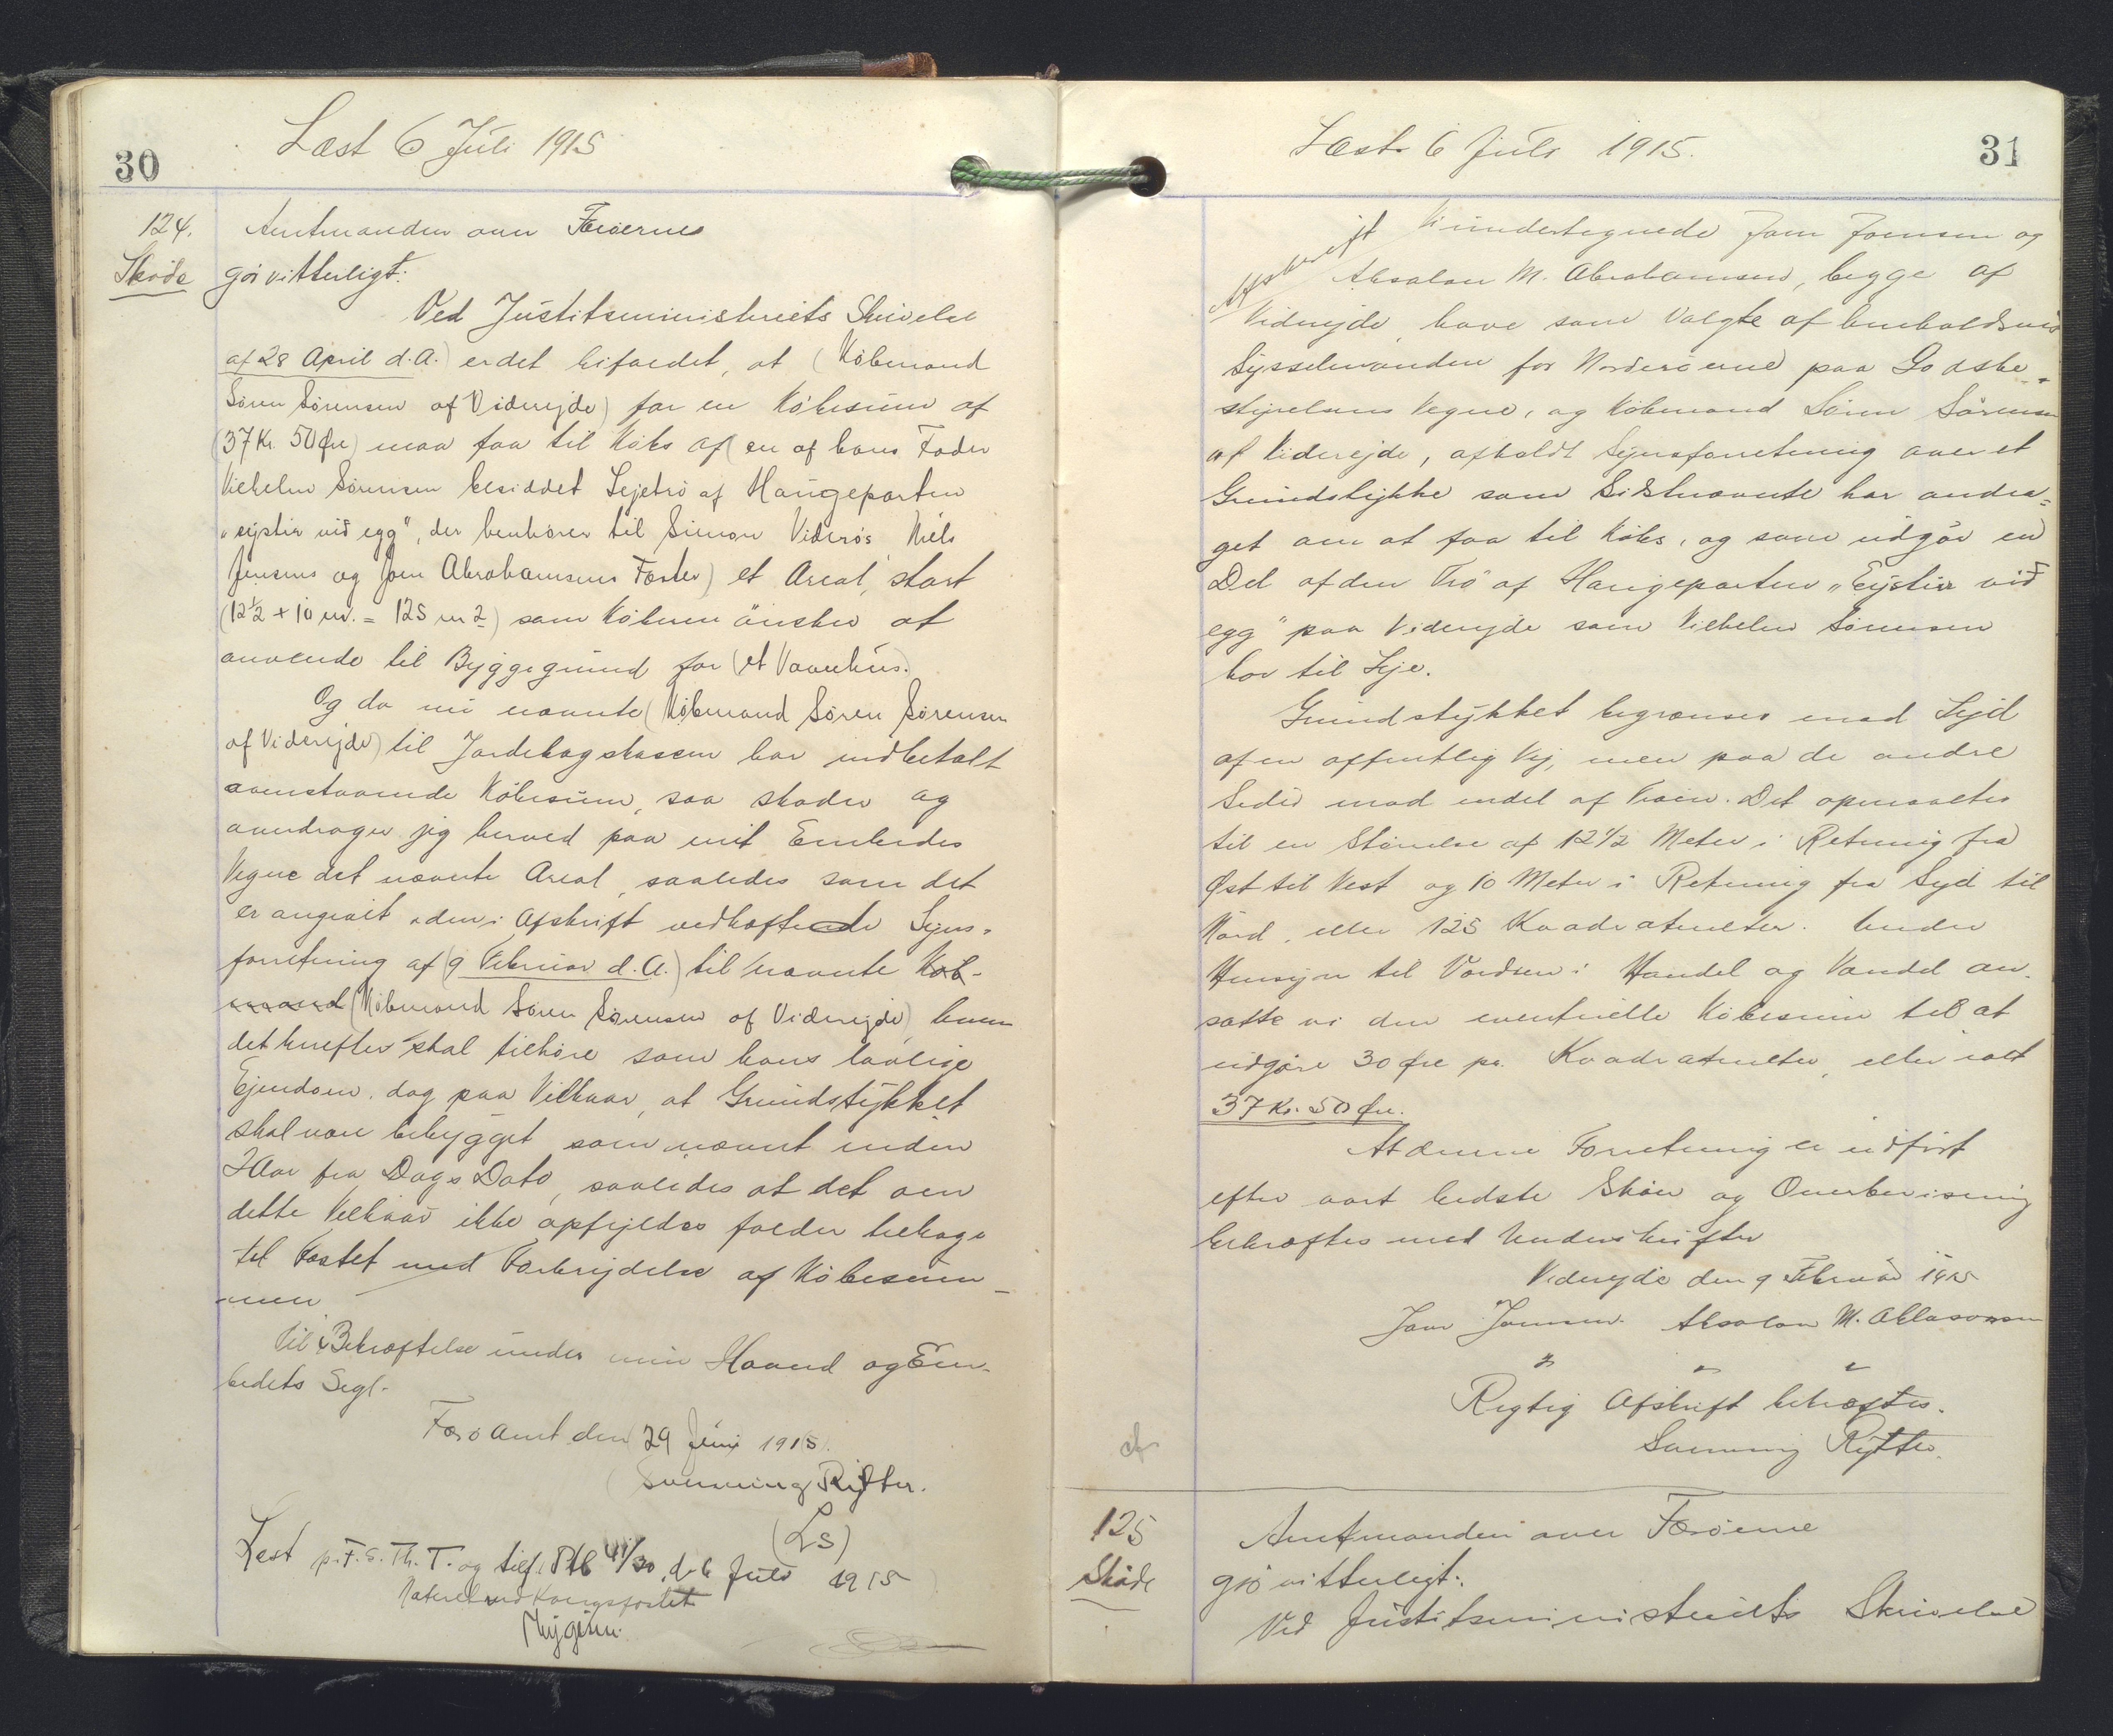 30
Læst 6 Juli 1915
124.
Skøde
Amtmanden over Færøerne
gør vitterligt:
Ved Justitsministeriets Skrivelse
af 28 April d.A.) er det bifaldet, at (Købmand
Søren Sørensen af Viderejde) for en Købesum af
(37 Kr. 50 Øre) maa faa til Købs af (en af hans Fader
Vilhelm Sørensen besiddet Lejetrø af Haugeparten
"eystir við egg", der henhører til Simon Viderøs Niels
Jensens og Joen Abrahamsens Fæster) et Areal, stort
(12½ + 10 m. = 125 m2) som Køberen ønsker at
anvende til Byggegrund for (et Vaanhus.)
Og da nu nævnte (Købmand Søren Sørensen
af Viderejde) til Jordebogskassen har indbetalt
ovenstaaende Købesum, saa skøder og
overdrager jeg herved paa mit Embedes
Vegne det nævnte Areal, saaledes som det
er angivet i den i Afskrift vedhæftede Syns-
forretning af (9 Februar d.A.) til nævnte Køb-
mand (Købmand Søren Sørensen af Viderejde) hvem
det herefter skal tilhøre som hans lovlige
Ejendom, dog paa Vilkaar, at Grundstykket
skal være bebygget som nævnt inden
2 Aar fra Dags Dato, saaledes at det om
dette Vilkaar ikke opfyldes falder tilbage
til Fæstet med Forbrydelse af Købesum-
men
Til Bekræftelse under min Haand og Em-
bedets Segl.
Færø Amt den (29 Juni 1915).
(Svenning Rytter.
(LS)
Læst p. F. S. Th. T. og tilf. Ptb 41/30, d. 6 Juli 1915
Matrikul med Kongsfæstet
31
Læst 6 Juli 1915.
Afskrift
Vi undertegnede Joen Joensen og
Absalon M. Abrahamsen, begge af
Viderejde, have som Valgte af henholdsvis
Sysselmanden for Norderøerne paa Godsbe-
styrelsens Vegne, og Købmand Søren Sørensen
af Viderejde, afholdt Synsforretning over et
Grundstykke som Sidstnævnte har andra-
get om at faa til Købs, og som udgør en
Del af den Trø af Haugeparten "Eystir við
egg" paa Viderejde som Vilhelm Sørensen
har til Leje.
Grundstykket begrænses mod Syd
af en offentlig Vej, men paa de andre
Sider mod endel af Trøen. Det opmaaltes
til en Størrelse af 12½ Meter i Retning fra
Øst til Vest og 10 Meter i Retning fra Syd til
Nord, eller 125 Kvadratmeter. Under
Hensyn til Værdien i Handel og Vandel an-
satte vi den eventuelle Købesum til at
udgøre 30 Øre pr. Kvadratmeter, eller ialt
37 Kr. 50 Øre.
At denne Forretning er udført
efter vort bedste Skøn og Overbevisning
bekræftes med Underskrifter
Viderejde den 9 Februar 1915
Joen Joensen. Absalon M. Abrahamsen
" " "
Rigtig Afskrift bekræftes.
Svenning Rytter.
125
Skøde
Amtmanden over Færøerne
gør vitterligt:
Ved Justitsministeriets Skrivelse